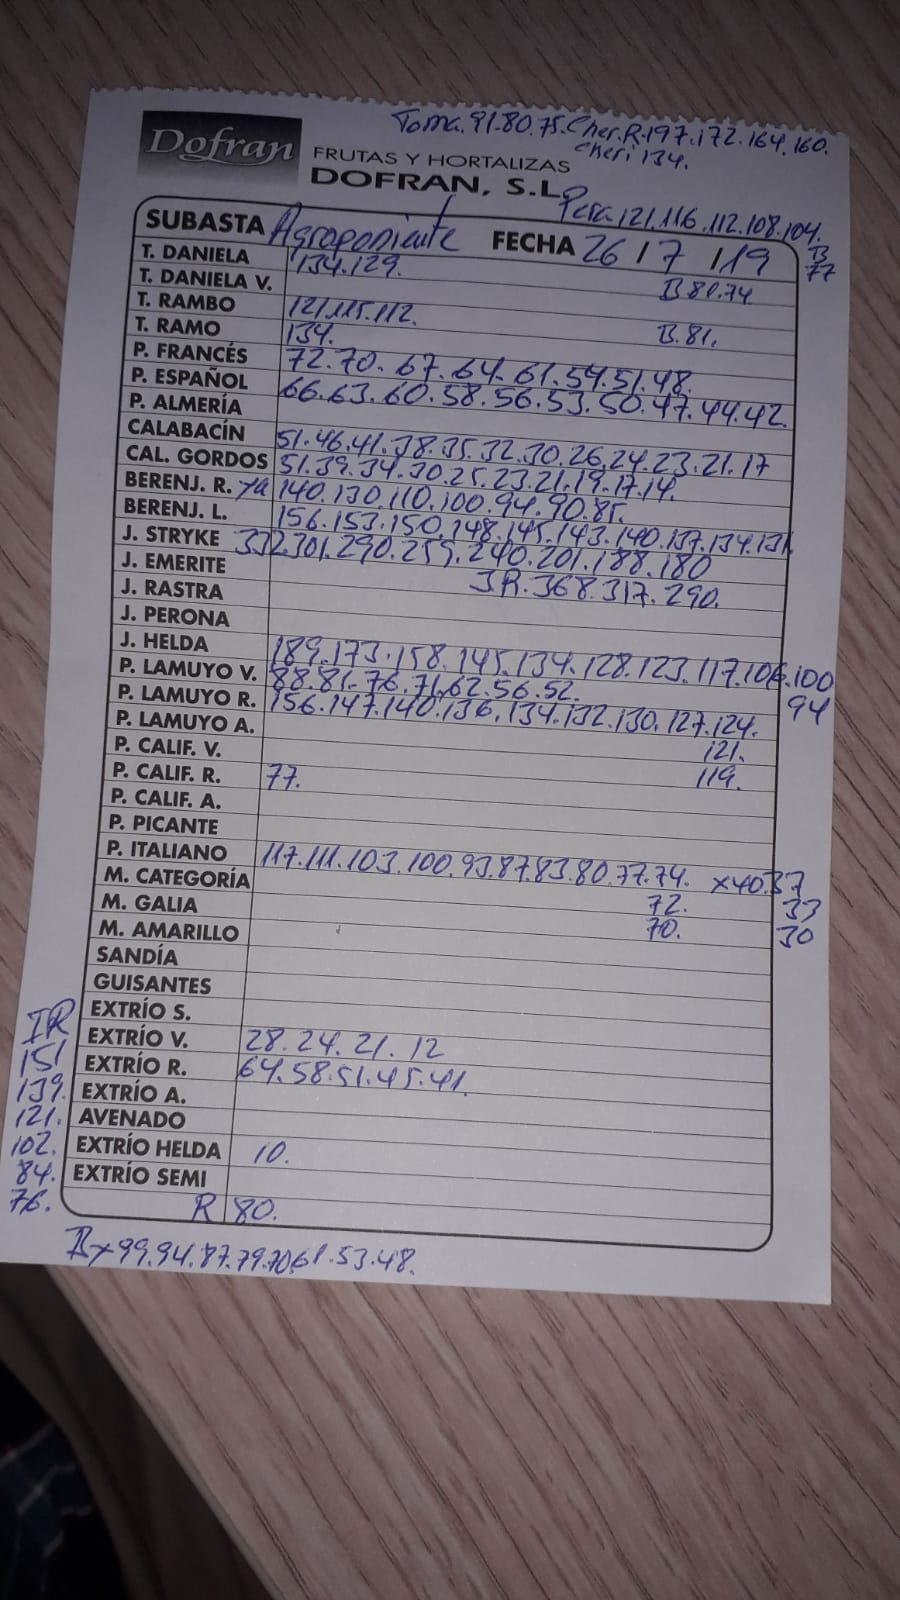 Toma.91.80.75.Cher.R.197.172.164.160.
Cheri 134.
Dofran
FRUTAS Y HORTALIZAS
DOFRAN, S.L.
Pera.121.116.112.108.104.
B
77
SUBASTA Agroponiente FECHA 26/7/19
T. DANIELA 134.129.
T. DANIELA V. B 80.74
T. RAMBO 121.115.112.
T. RAMO 134. B.81.
P. FRANCÉS 72.70.67.64.61.54.51.48.
P. ESPAÑOL 66.63.60.58.56.53.50.47.44.42.
P. ALMERÍA
CALABACÍN 51.46.41.38.35.32.30.26.24.23.21.17
CAL. GORDOS 51.39.34.30.25.23.21.19.17.14.
BERENJ. R. ya 140.130.110.100.94.90.85.
BERENJ. L. 156.153.150.148.145.143.140.137.134.131.
J. STRYKE 332.301.290.259.240.201.188.180
J. EMERITE J.R.368.317.290.
J. RASTRA
J. PERONA
J. HELDA 189.173.158.145.134.128.123.117.106.100
P. LAMUYO V. 88.81.76.71.62.56.52. 94
P. LAMUYO R. 156.147.140.136.134.132.130.127.124.
P. LAMUYO A. 121.
P. CALIF. V. 119.
P. CALIF. R. 77.
P. CALIF. A.
P. PICANTE
P. ITALIANO 117.111.103.100.93.87.83.80.77.74. x40.37
M. CATEGORÍA 72. 33
M. GALIA 70. 30
M. AMARILLO
SANDÍA
GUISANTES
EXTRÍO S.
IR
EXTRÍO V. 28.24.21.12
151
EXTRÍO R. 64.58.51.45.41.
139.
EXTRÍO A.
121.
AVENADO
102.
EXTRÍO HELDA 10.
84.
EXTRÍO SEMI
76.
R 80.
Bx99.94.87.79.70.61.53.48.